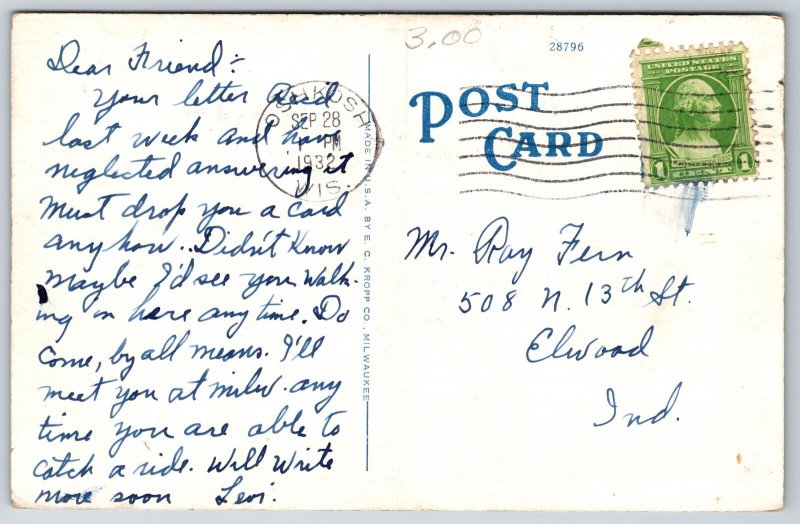 3.00
28796
Dear Friend:-
Your letter Rec'd
last week and have
neglected answering it
Must drop you a card
anyhow. Didn't Know
Maybe I'd see you Walk-
ing in here any time. Do
Come, by all means. I'll
meet you at milw. any
time you are able to
catch a ride. Will Write
more soon Levi.
OSHKOSH
SEP 28
PM
1932
WIS.
MADE IN U.S.A. BY E. C. KROPP CO., MILWAUKEE
POST
CARD
UNITED STATES
POSTAGE
1 CENT 1
Mr. Ray Fern
508 N. 13th St.
Elwood
Ind.